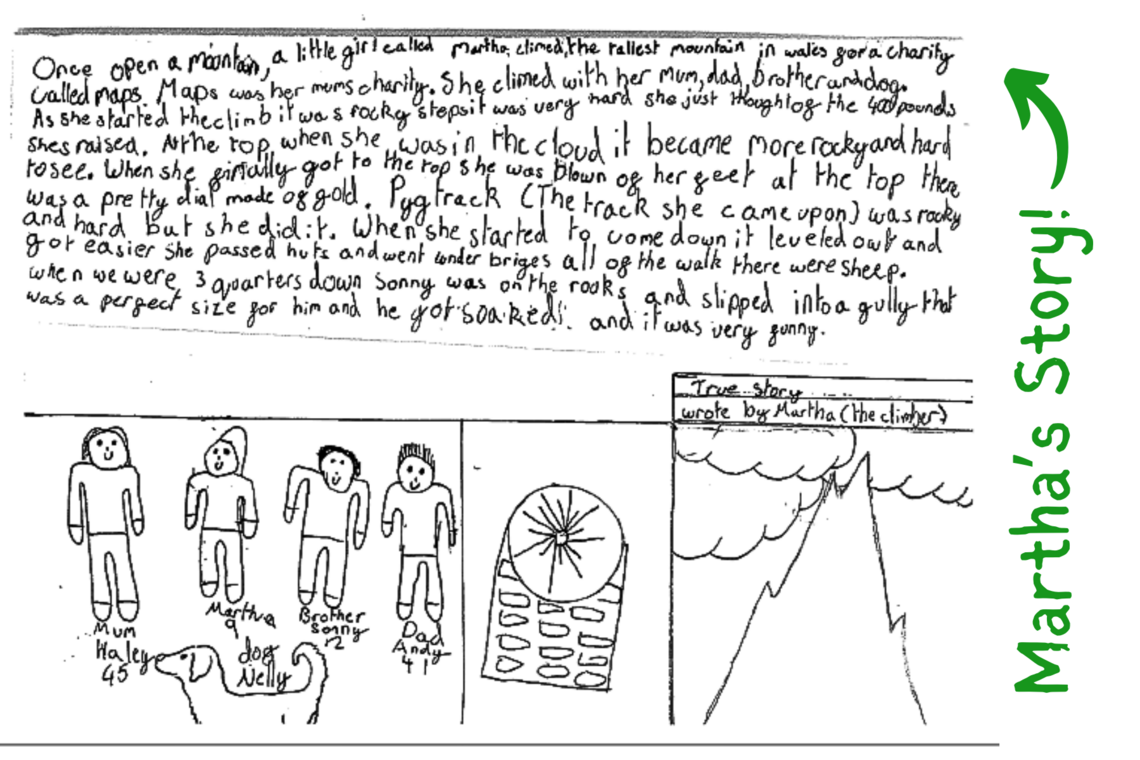 Once open a mountain, a little girl called Martha, climed, the tallest mountain in wales for a charity
called maps. Maps was her mums charity. She climed with her mum, dad, brother and dog.
As she started the climb it was rocky steps it was very hard she just thought of the 400 pounds
shes raised. At the top, when she was in the cloud it became more rocky and hard
to see. When she finally got to the top she was blown of her feet at the top there
was a pretty dial made of gold. Pyg track (The track she came upon) was rocky
and hard but she did it. When she started to come down it leveled owt and
got easier she passed huts and went under briges all of the walk there were sheep.
when we were 3 quarters down Sonny was on the rocks and slipped into a gully that
was a perfect size for him and he got soaked! and it was very funny.
True story
wrote by Martha (the climber)
Mum
Haley
45
Martha
9
Brother
Sonny
12
Dad
Andy
41
dog
Nelly
Martha's Story!